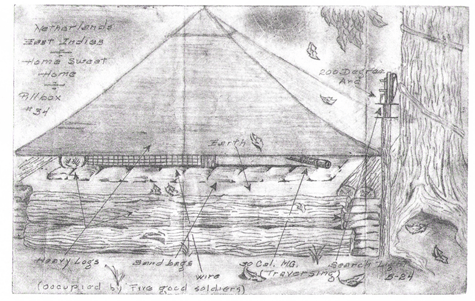 Netherlands
East Indies
Home Sweet
Home
Pillbox
#34
200 Degree
Arc
Earth
Heavy Logs
Sand bags
wire
30 Cal. MG.
(Traversing)
Search Lg
5-24
(occupied by Five good soldiers)